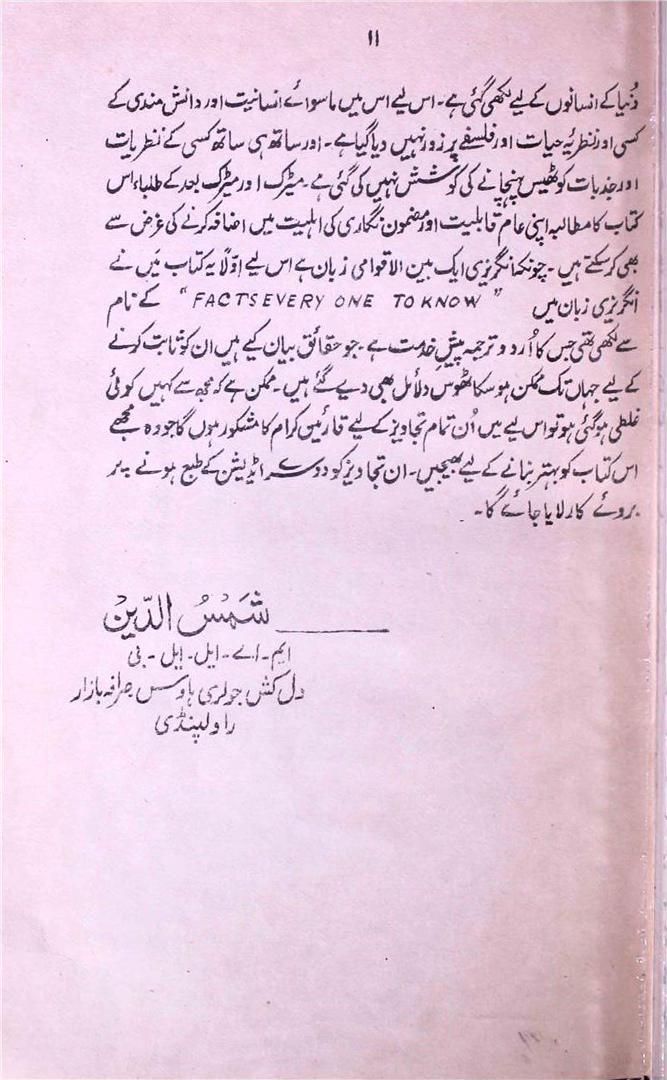 ۱۱
دُنیا کے انسانوں کے لیے لکھی گئی ہے۔ اس لیے اس میں ماسوائے انسانیت اور دانش مندی کے
کسی اور نظریۂ حیات اور فلسفے پر زور نہیں دیا گیا ہے۔ اور ساتھ ہی ساتھ کسی کے نظریات
اور جذبات کو ٹھیس پہنچانے کی کوشش نہیں کی گئی ہے۔ میٹرک اور میٹرک بعد کے طلباء اس
کتاب کا مطالبہ اپنی عام قابلیت اور مضمون نگاری کی اہلیت میں اضافہ کرنے کی غرض سے
بھی کر سکتے ہیں۔ چونکہ انگریزی ایک بین الاقوامی زبان ہے اس لیے اوّلاً یہ کتاب میں نے
انگریزی زبان میں "FACTS EVERY ONE TO KNOW" کے نام
سے لکھی تھی جس کا اُردو ترجمہ پیشِ خدمت ہے۔ جو حقائق بیان کیے ہیں ان کو ثابت کرنے
کے لیے جہاں تک ممکن ہو سکا ٹھوس دلائل بھی دیے گئے ہیں۔ ممکن ہے کہ مجھ سے کہیں کوئی
غلطی ہو گئی ہو تو اس لیے میں اُن تمام تجاویز کے لیے قارئین کرام کا مشکور ہوں گا جو وہ مجھے
اس کتاب کو بہتر بنانے کے لیے بھیجیں۔ ان تجاویز کو دوسرے ایڈیشن کے طبع ہونے پر
بروئے کار لایا جائے گا۔
شَمسُ الدّین
ایم۔اے۔ایل۔ایل۔بی
دل کش جولری ہاوس صرافہ بازار
راولپنڈی